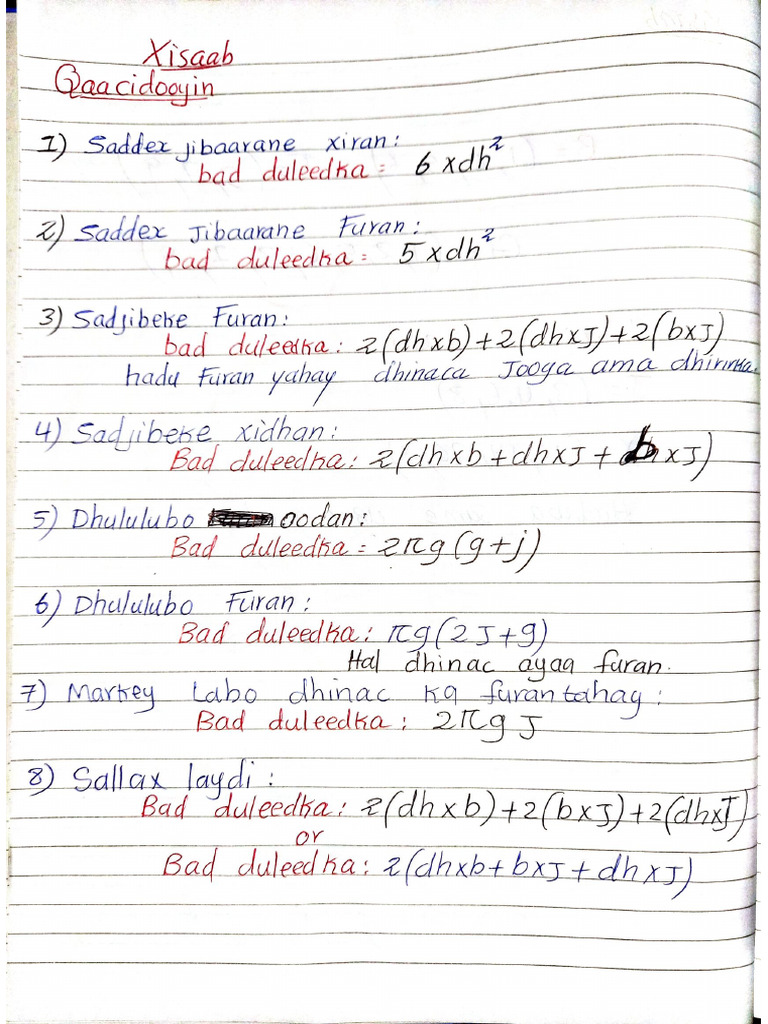 Xisaab
Qaacidooyin
1) Saddex jibaarane xiran:
bad duleedka = 6 x dh²
2) Saddex Jibaarane Furan:
bad duleedka = 5 x dh²
3) Sadjibeke Furan:
bad duleedka: 2(dh x b) + 2(dh x J) + 2(b x J)
hadu Furan yahay dhinaca Jooga ama dhirirka.
4) Sadjibeke xidhan:
Bad duleedka: 2(dh x b + dh x J + b x J)
5) Dhululubo oodan:
Bad duleedka = 2πg(g+j)
6) Dhululubo Furan:
Bad duleedka: πg(2J+g)
Hal dhinac ayaa furan.
7) Markey Labo dhinac ka furantahay:
Bad duleedka: 2πg J
8) Sallax laydi:
Bad duleedka: 2(dh x b) + 2(b x J) + 2(dh x J)
or
Bad duleedka: 2(dh x b + b x J + dh x J)